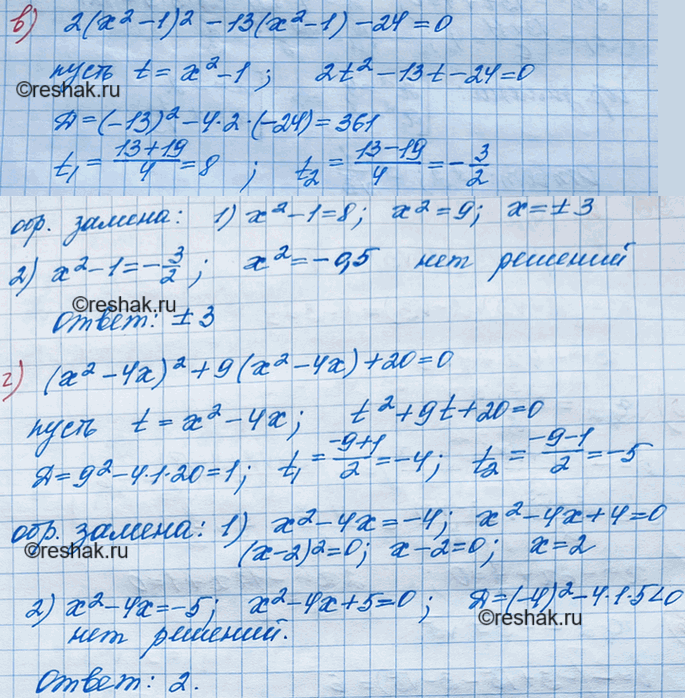 в) 2(x²-1)² - 13(x²-1) - 24 = 0
пусть t = x²-1 ; 2t² - 13t - 24 = 0
©reshak.ru
Д = (-13)² - 4·2·(-24) = 361
t₁ = (13+19)/4 = 8 ; t₂ = (13-19)/4 = -3/2
обр. замена: 1) x²-1 = 8; x² = 9; x = ±3
2) x²-1 = -3/2 ; x² = -0,5 нет решений
©reshak.ru
Ответ: ±3
г) (x²-4x)² + 9(x²-4x) + 20 = 0
пусть t = x²-4x; t² + 9t + 20 = 0
Д = 9² - 4·1·20 = 1; t₁ = (-9+1)/2 = -4; t₂ = (-9-1)/2 = -5
обр. замена: 1) x²-4x = -4; x²-4x+4 = 0
©reshak.ru
(x-2)² = 0; x-2 = 0; x = 2
2) x²-4x = -5; x²-4x+5 = 0 ; Д = (-4)² - 4·1·5 < 0
©reshak.ru
нет решений.
Ответ: 2.